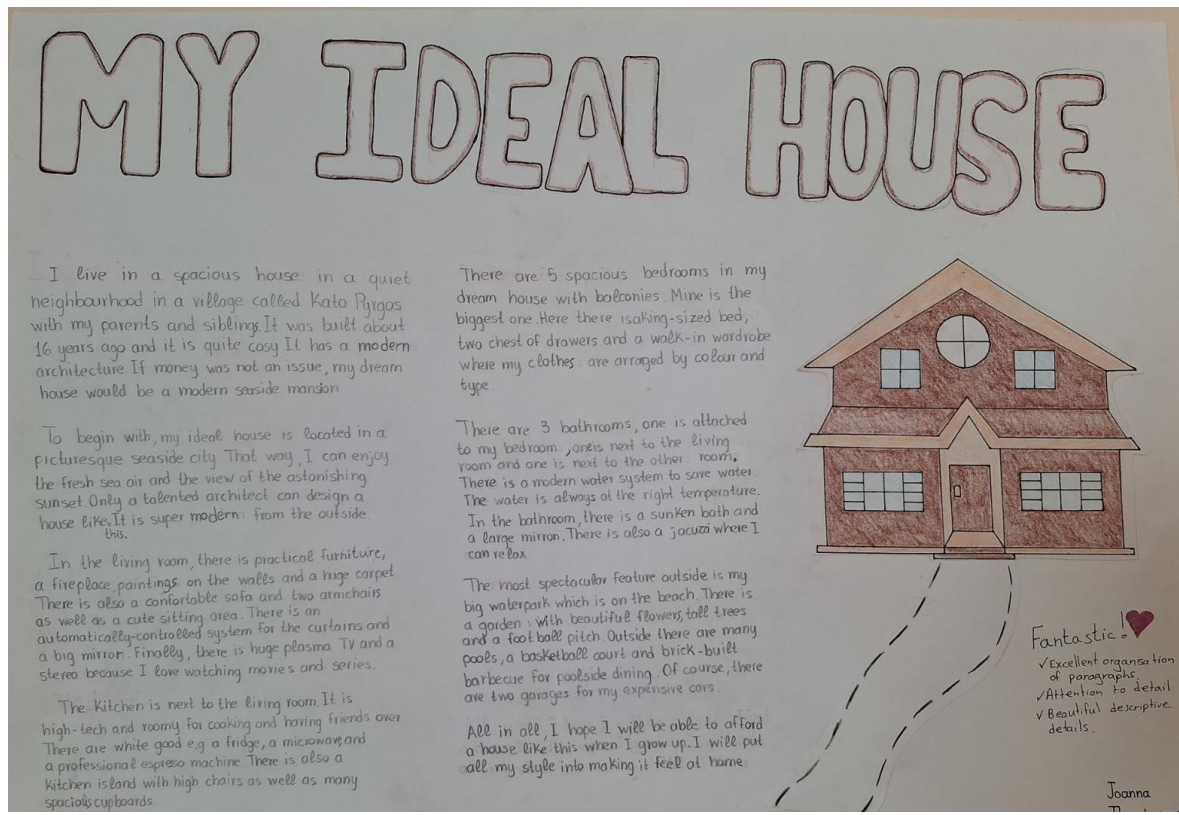 MY IDEAL HOUSE
I live in a spacious house in a quiet
neighbourhood in a village called Kato Pyrgos
with my parents and siblings. It was built about
16 years ago and it is quite cosy It has a modern
architecture. If money was not an issue, my dream
house would be a modern seaside mansion.
To begin with, my ideal house is located in a
picturesque seaside city. That way, I can enjoy
the fresh sea air and the view of the astonishing
sunset. Only a talented architect can design a
house like. It is super modern from the outside
this.
In the living room, there is practical furniture,
a fireplace, paintings on the walls and a huge carpet.
There is also a confortable sofa and two armchairs
as well as a cute sitting area. There is an
automatically-controlled system for the curtains and
a big mirror. Finally, there is huge plasma TV and a
stereo because I love watching movies and series.
The Kitchen is next to the living room. It is
high-tech and roomy for cooking and having friends over
There are white good e.g a fridge, a microwave, and
a professional espresso machine. There is also a
Kitchen island with high chairs as well as many
spacious cupboards.
There are 5 spacious bedrooms in my
dream house with balconies. Mine is the
biggest one. Here there is a king-sized bed,
two chest of drawers and a walk-in wardrobe
where my clothes are arranged by colour and
type.
There are 3 bathrooms, one is attached
to my bedroom, one is next to the living
room and one is next to the other room.
There is a modern water system to save water.
The water is always at the right temperature.
In the bathroom, there is a sunken bath and
a large mirron. There is also a jacuzzi where I
can relax.
The most spectacular feature outside is my
big waterpark which is on the beach. There is
a garden with beautiful flowers, tall trees
and a football pitch. Outside there are many
pools, a basketball court and brick-built
barbecue for poolside dining. Of course, there
are two garages for my expensive cars.
All in all, I hope I will be able to afford
a house like this when I grow up. I will put
all my style into making it feel at home.
Fantastic!
✓Excellent organsation
of paragraphs.
✓Attention to detail
✓Beautiful descriptive
details.
Joanna